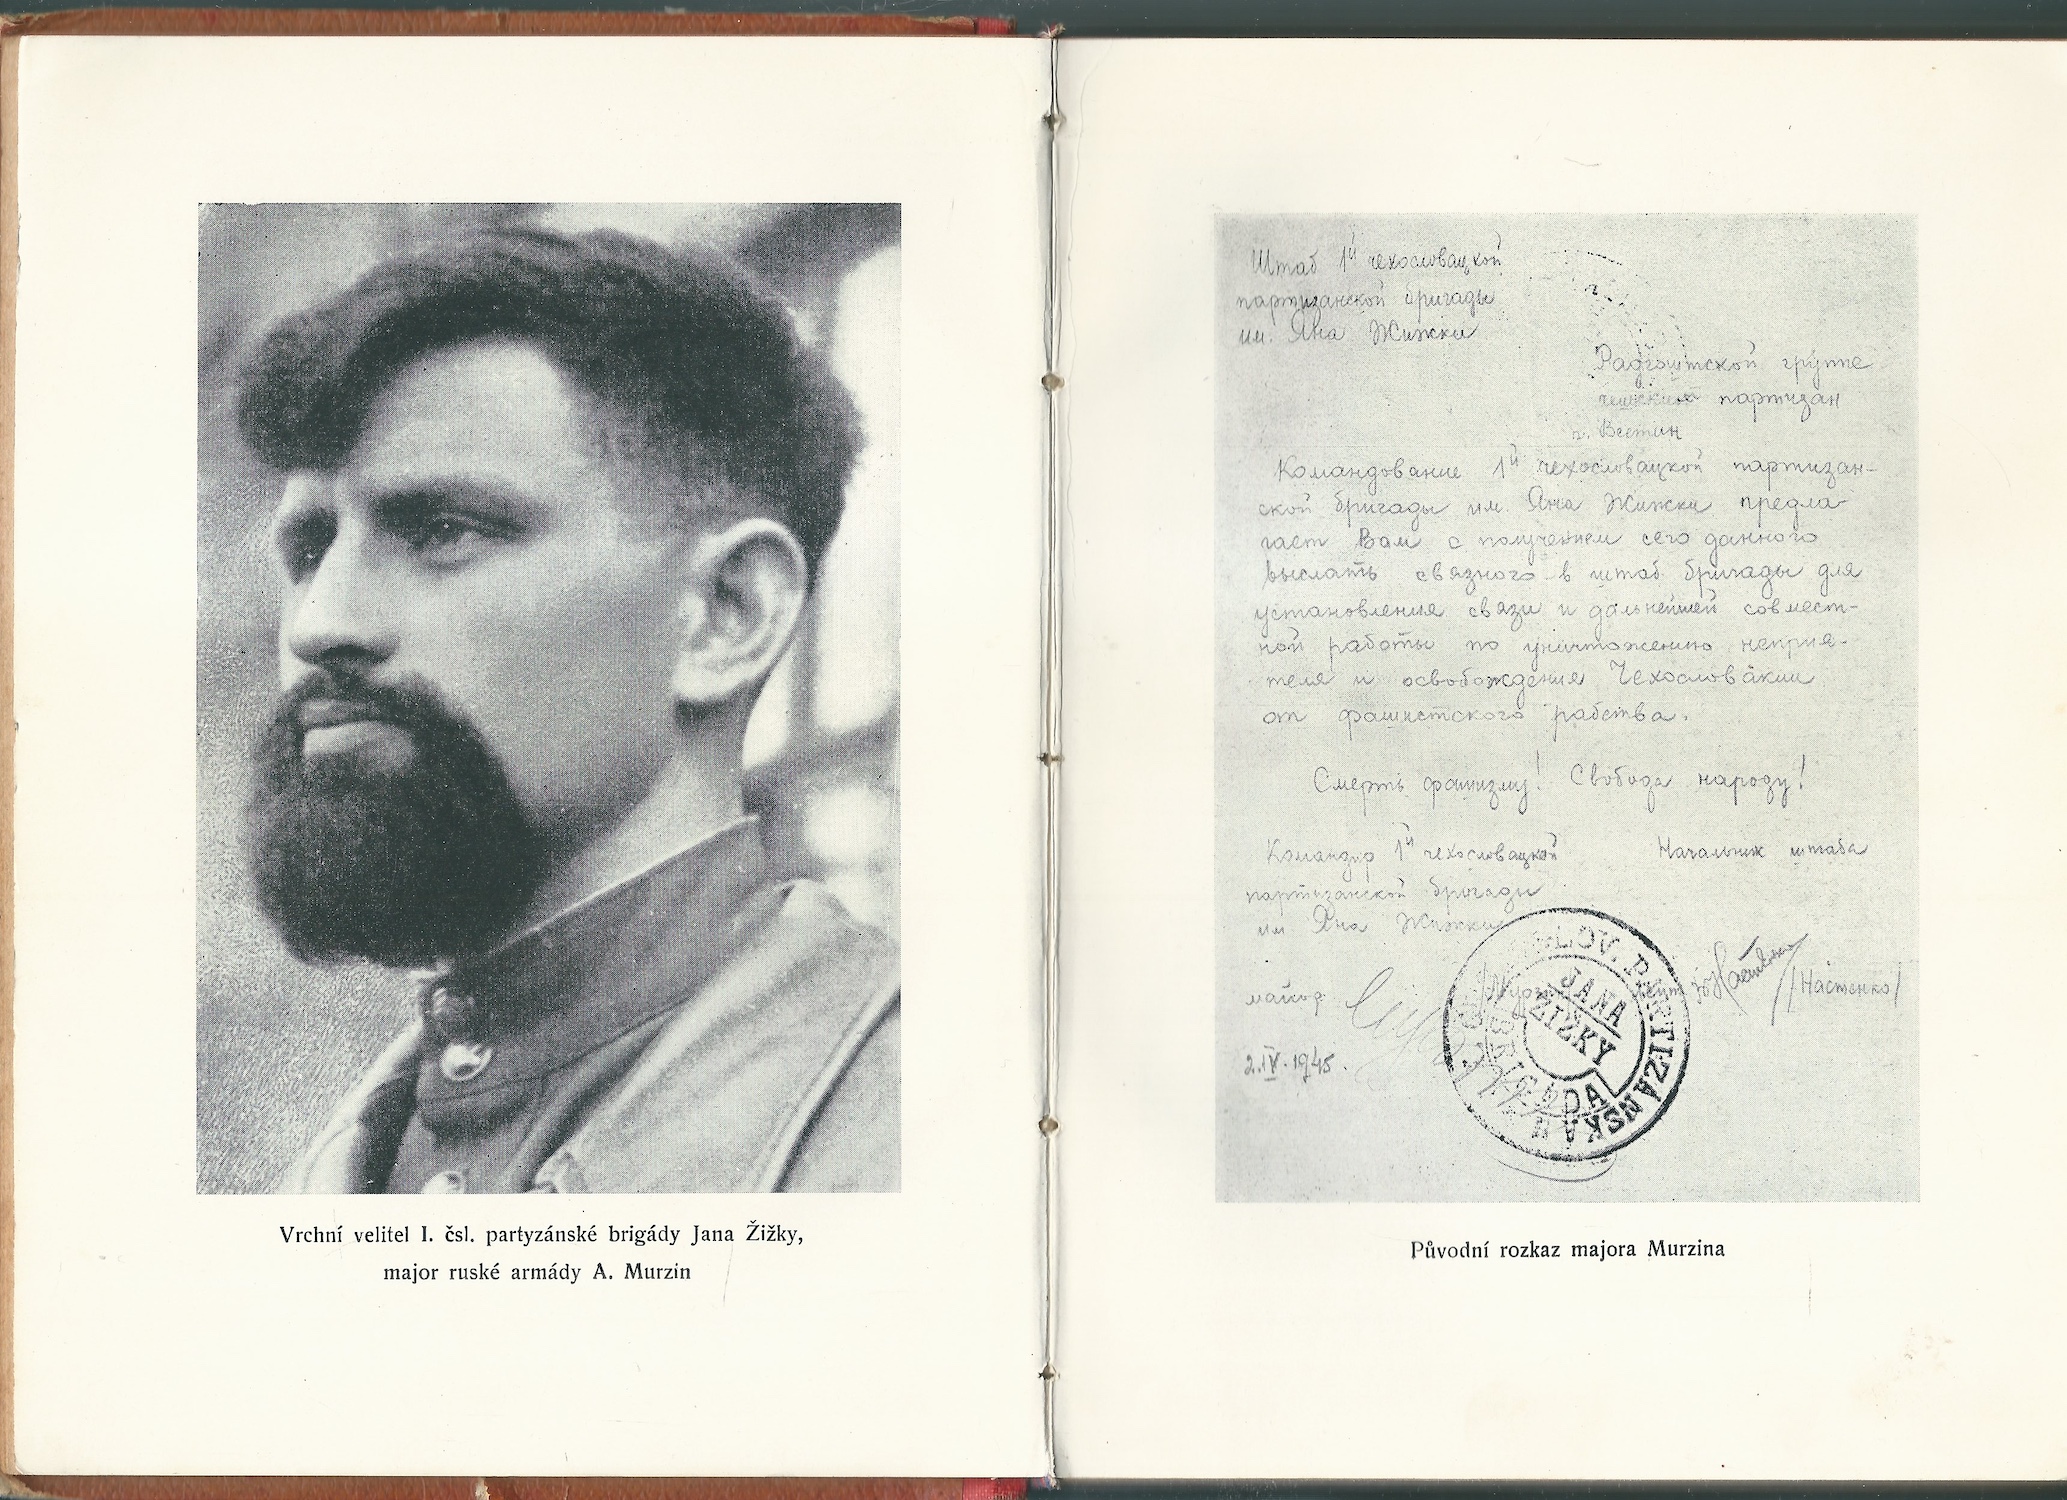 Vrchní velitel I. čsl. partyzánské brigády Jana Žižky,
major ruské armády A. Murzin
Штаб 1й чехословацкой
партизанской бригады
им. Яна Жижки
Радгоштской группе
партизан
г. Всетин
Командование 1й чехословацкой партизан-
ской бригады им. Яна Жижки предла-
гает Вам с получением сего данного
выслать связного в штаб бригады для
установления связи и дальнейшей совмест-
ной работы по уничтожению неприя-
теля и освобождения Чехословакии
от фашистского рабства.
Смерть фашизму! Свобода народу!
Командир 1й чехословацкой
партизанской бригады
им Яна Жижки
Начальник штаба
майор
/Настенко/
2.IV.1945.
PARTIZANSKA
JANA
ŽIŽKY
Původní rozkaz majora Murzina